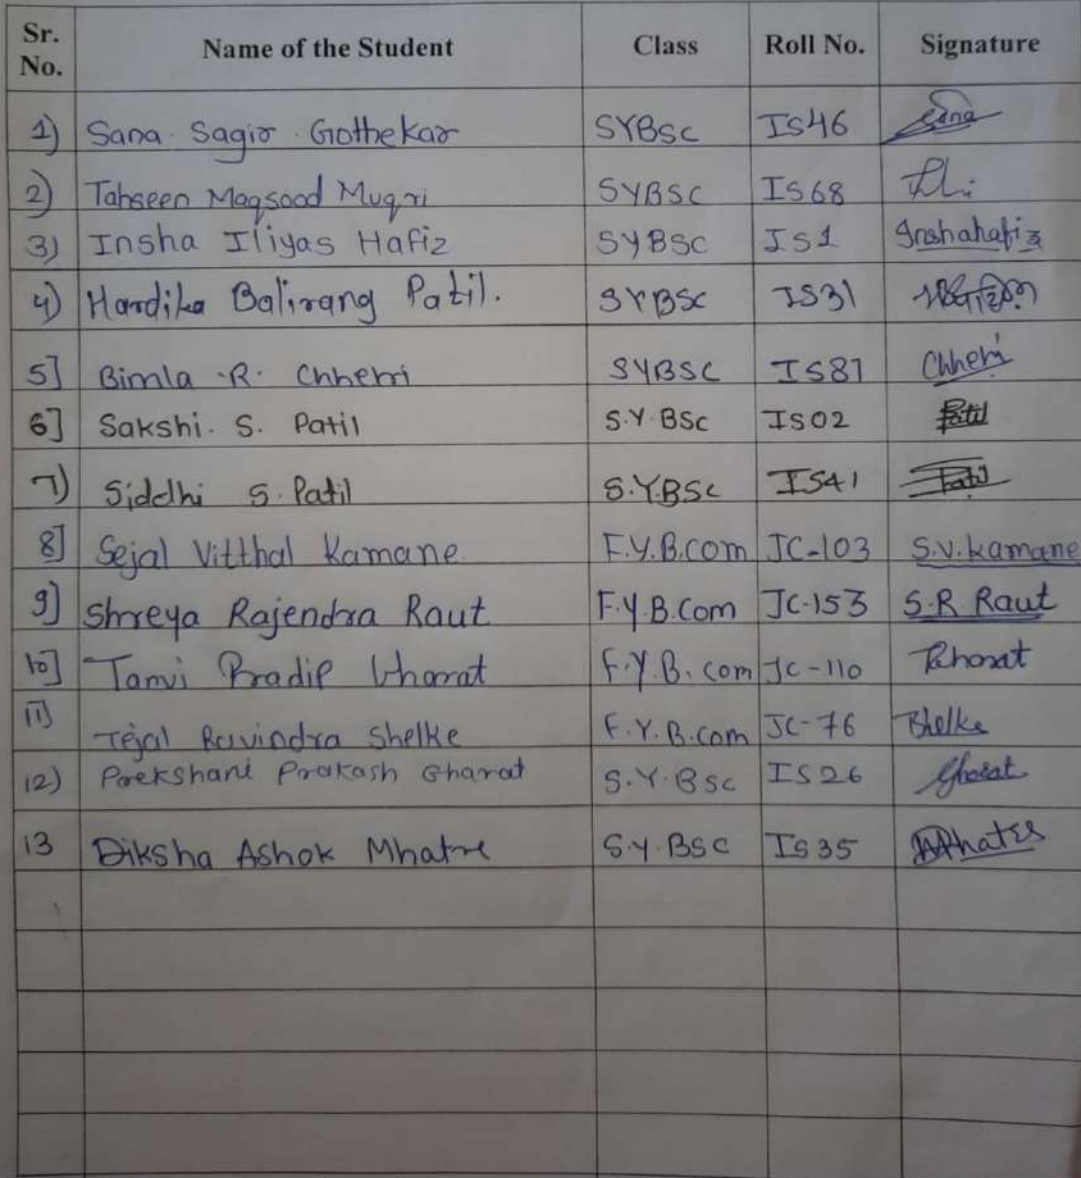 Sr. No. Name of the Student Class Roll No. Signature
1) Sana Sagir Gothekar SYBSC IS46 Sana
2) Tahseen Maqsood Muqri SYBSC IS68
3) Insha Iliyas Hafiz SYBSC IS1 Inshahafiz
4) Hardika Balirang Patil. SYBSC IS31
5] Bimla .R. Chhetri SYBSC IS81 Chhetri
6] Sakshi. S. Patil S.Y.BSc IS02 Patil
7) Siddhi S. Patil S.Y.BSc IS41 Patil
8] Sejal Vitthal Kamane F.Y.B.com JC-103 S.V.kamane
9] Shreya Rajendra Raut F.Y.B.Com JC-153 S.R.Raut
10] Tanvi Pradip Gharat F.Y.B.com JC-110
11] Tejal Ravindra Shelke F.Y.B.com JC-76
12) Prekshani Prakash Gharat S.Y.BSc IS26 Gharat
13 Diksha Ashok Mhatre S.Y.BSC IS35